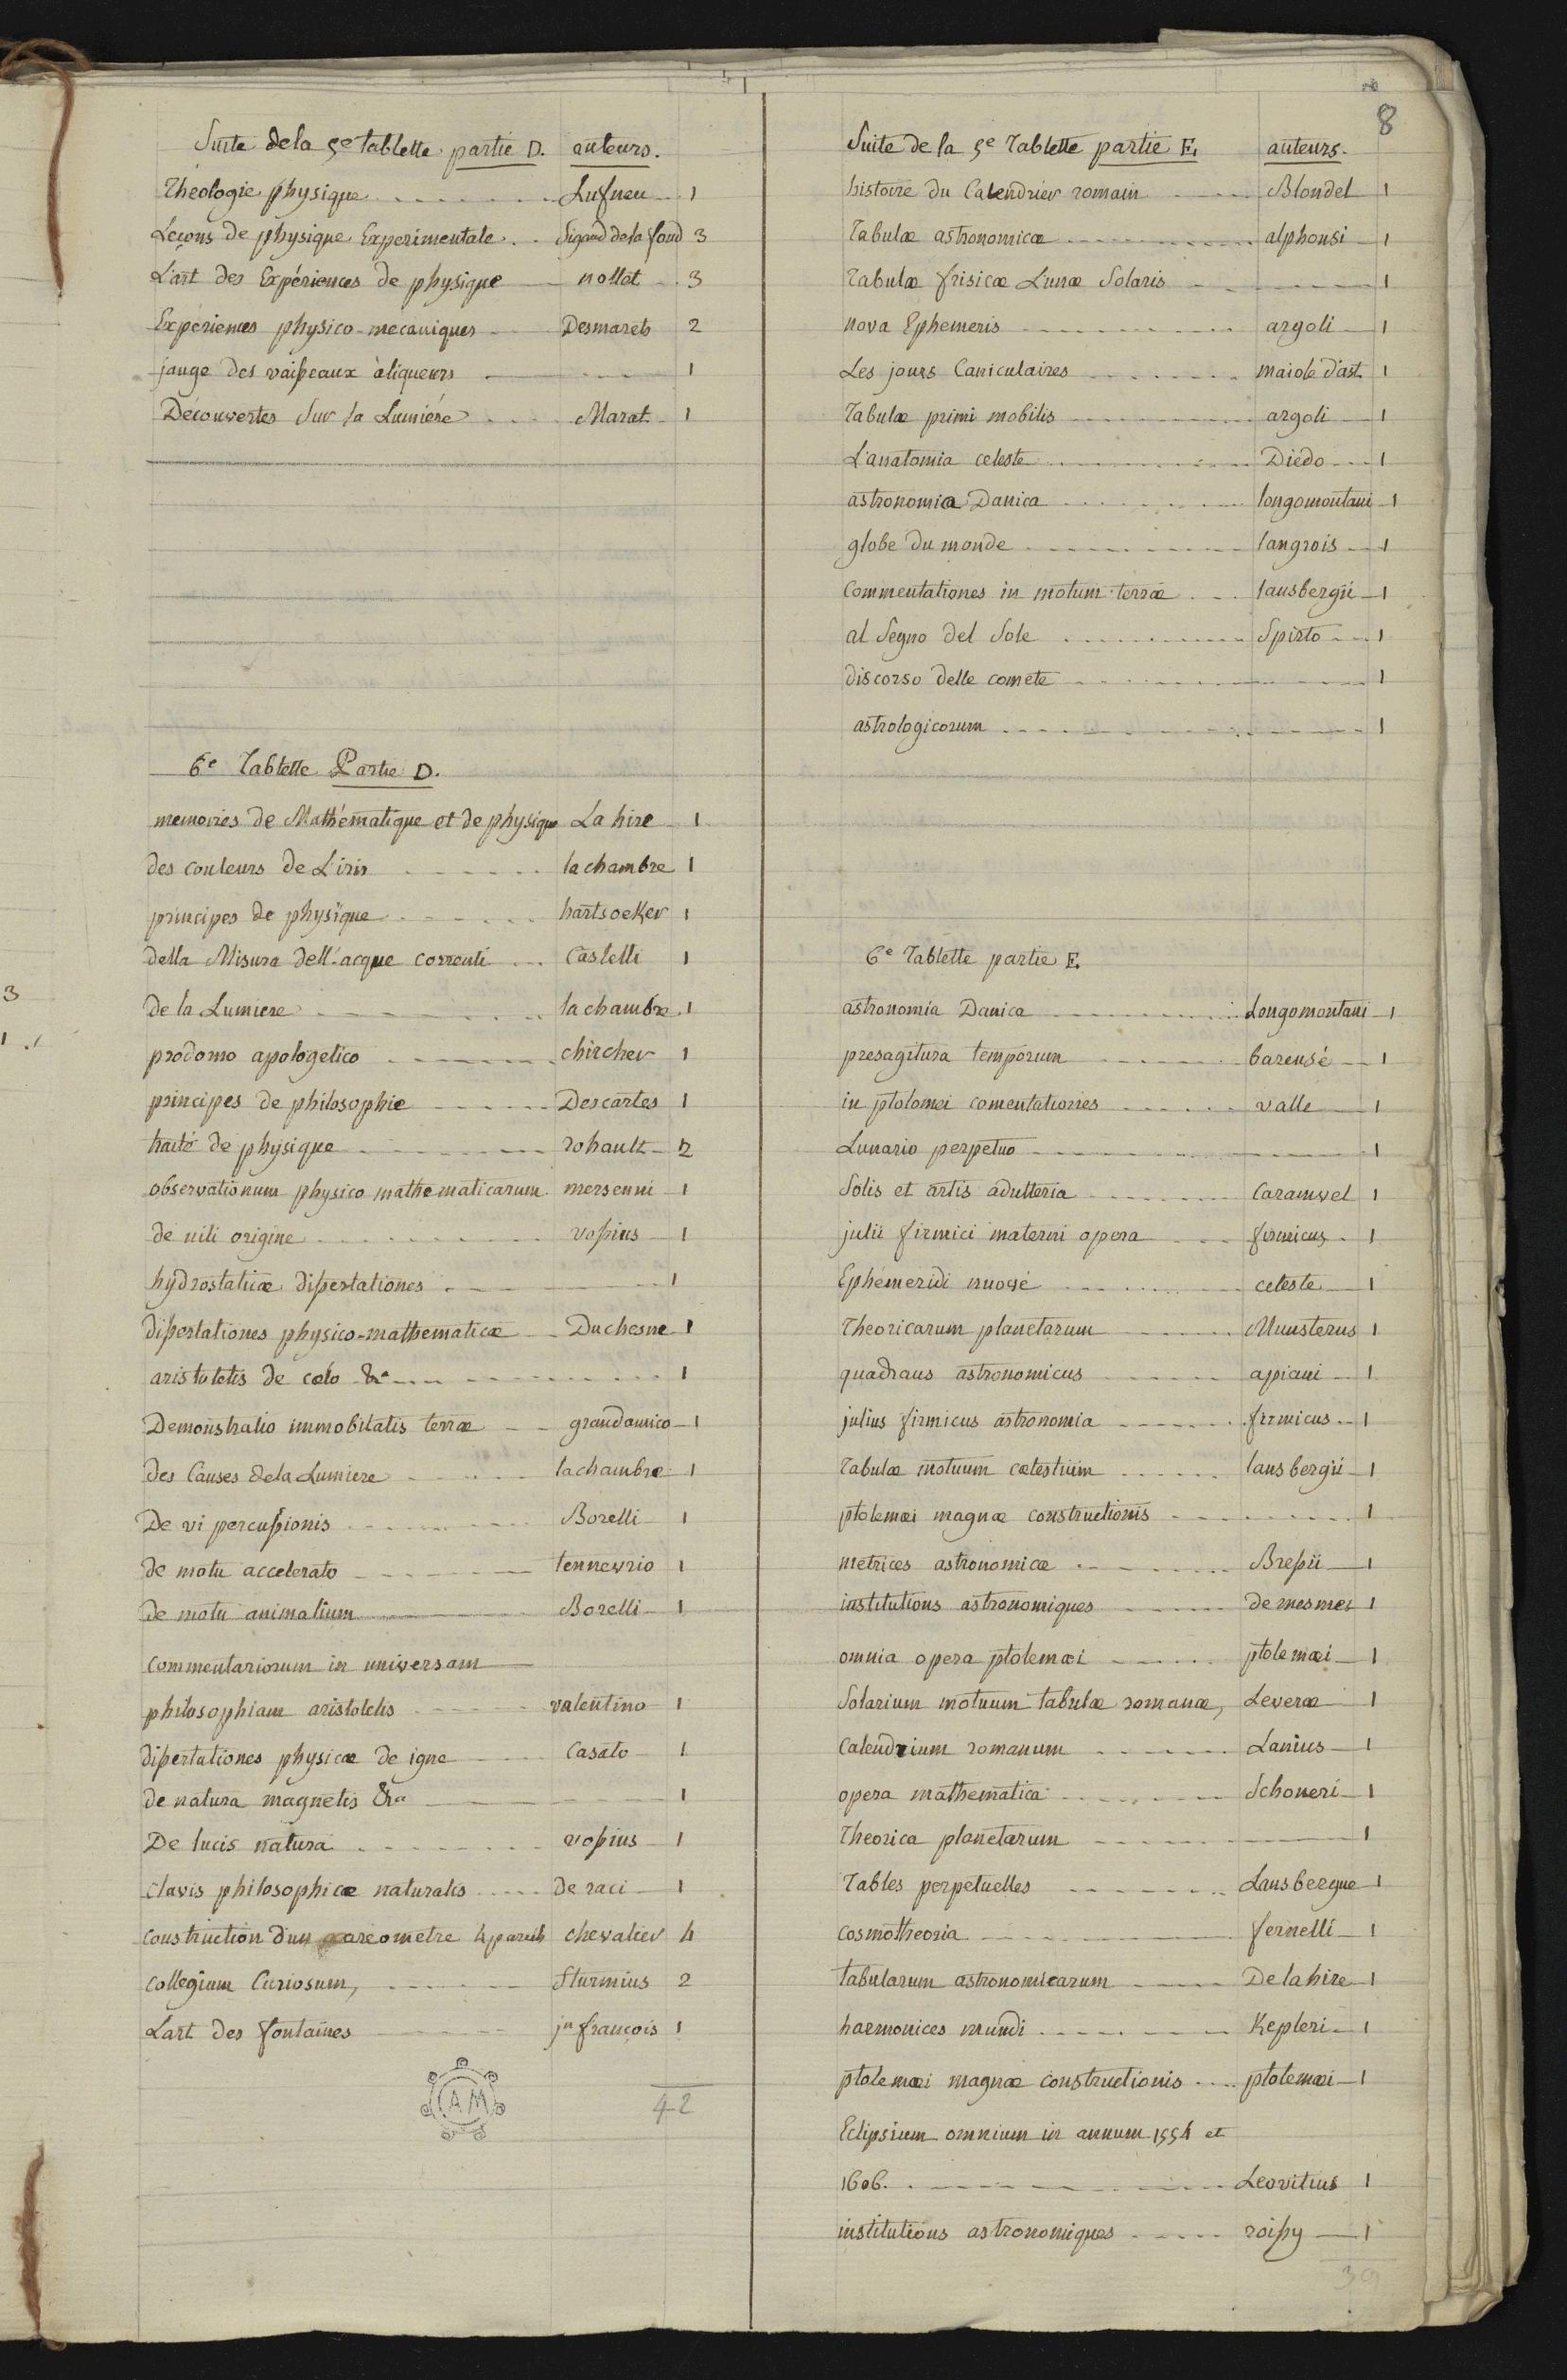 8
Suite de la 5e tablette partie D. auteurs.
Théologie physique Lufneu 1
Leçons de physique Experimentale Sigaud de la fond 3
L'art des Expériences de physique nollet 3
Expériences physico-mecaniques Desmarets 2
jauge des vaisseaux à liqueurs 1
Découvertes Sur la Lumiére Marat 1
6e Tablette Partie D.
memoires de Mathématique et de physique La hire 1
des couleurs de L'iris la chambre 1
principes de physique hartsoeker 1
della Misura dell'acque correnti Castelli 1
de la Lumiere la chambre 1
prodomo apologetico chircher 1
principes de philosophie Descartes 1
traité de physique rohault 2
observationum physico mathematicarum mersenni 1
de nili origine vossius 1
hydrostaticæ dissertationes 1
dissertationes physico-mathematicæ Duchesne 1
aristotelis de cœlo &a 1
Demonstratio immobilatis terræ grandamico 1
des Causes de la Lumiere la chambre 1
De vi percussionis Borelli 1
de motu accelerato tennevrio 1
de motu animalium Borelli 1
commentariorum in universam
philosophiam aristotelis valentino 1
dissertationes physicæ de igne Casato 1
de natura magnetis &ra 1
De lucis natura vossius 1
clavis philosophicæ naturalis de raci 1
construction d'un areometre 4 pareils chevalier 4
collegium Curiosum, Sturmius 2
L'art des fontaines jn françois 1
AM
42
Suite de la 5e Tablette partie E. auteurs.
histoire du Calendrier romain Blondel 1
Tabulæ astronomicæ alphonsi 1
Tabulæ frisicæ Lunæ Solaris 1
nova Ephemeris argoli 1
Les jours Caniculaires maiole d'ast. 1
Tabulæ primi mobilis argoli 1
L'anatomia celeste Diédo 1
astronomia Danica longomontani 1
globe du monde langrois 1
Commentationes in motum terræ lansbergii 1
al Segno del Sole Spirto 1
discorso delle comete 1
astrologicorum 1
6e Tablette partie E.
astronomia Danica Longomontani 1
presagitura temporum barensé 1
in ptolomei comentationes valle 1
Lunario perpetuo 1
Solis et artis adulteria Caramvel 1
julii firmici materni opera firmicus 1
Ephémeridi nuové celeste 1
Theoricarum planetarum Munsterus 1
quadrans astronomicus apiani 1
julius firmicus astronomia firmicus 1
Tabulæ motuum cœlestium lansbergii 1
ptolemæi magnæ constructionis 1
metrices astronomicæ Bressii 1
institutions astronomiques de mesmes 1
omnia opera ptolemæi ptolemæi 1
Solarium motuum tabulæ romanæ, Leveræ 1
Calendrium romanum Lanius 1
opera mathematica Schoneri 1
Theorica planetarum 1
Tables perpetuelles Lansbergue 1
cosmotheoria fernelli 1
tabularum astronomicarum De la hire 1
harmonices mundi Kepleri 1
ptolemæi magnæ constructionis ptolemæi 1
Eclipsium omnium in annum 1554 et
1606. Leovitius 1
institutions astronomiques roissy 1
39
3
1